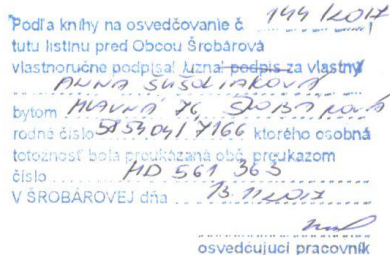 Podľa knihy na osvedčovanie č 144/2017
tutu listinu pred Obcou Šrobárová
vlastnoručne podpísal /uznal podpis za vlastný
ANNA ŠUŠOLIAKOVÁ
bytom HLAVNÁ 76
rodné číslo ktorého osobná
totožnosť bola preukázaná obč. preukazom
číslo HD 561 363
V ŠROBÁROVEJ dňa 13.11.2017
osvedčujúci pracovník